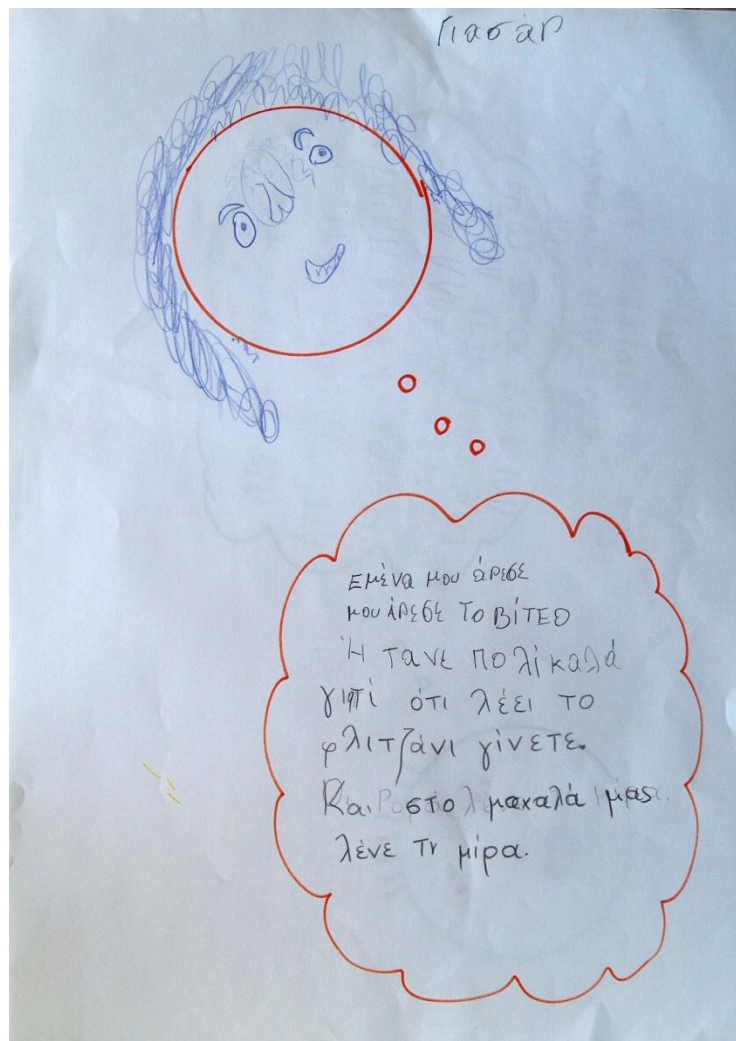 Γιασάρ
Εμένα μου άρεσε
μου άρεσε το βίτεο
Ή τανε πολί καλά
γιατί ότι λέει το
φλιτζάνι γίνετε.
Και στο μαχαλά μας
λένε τι μίρα.